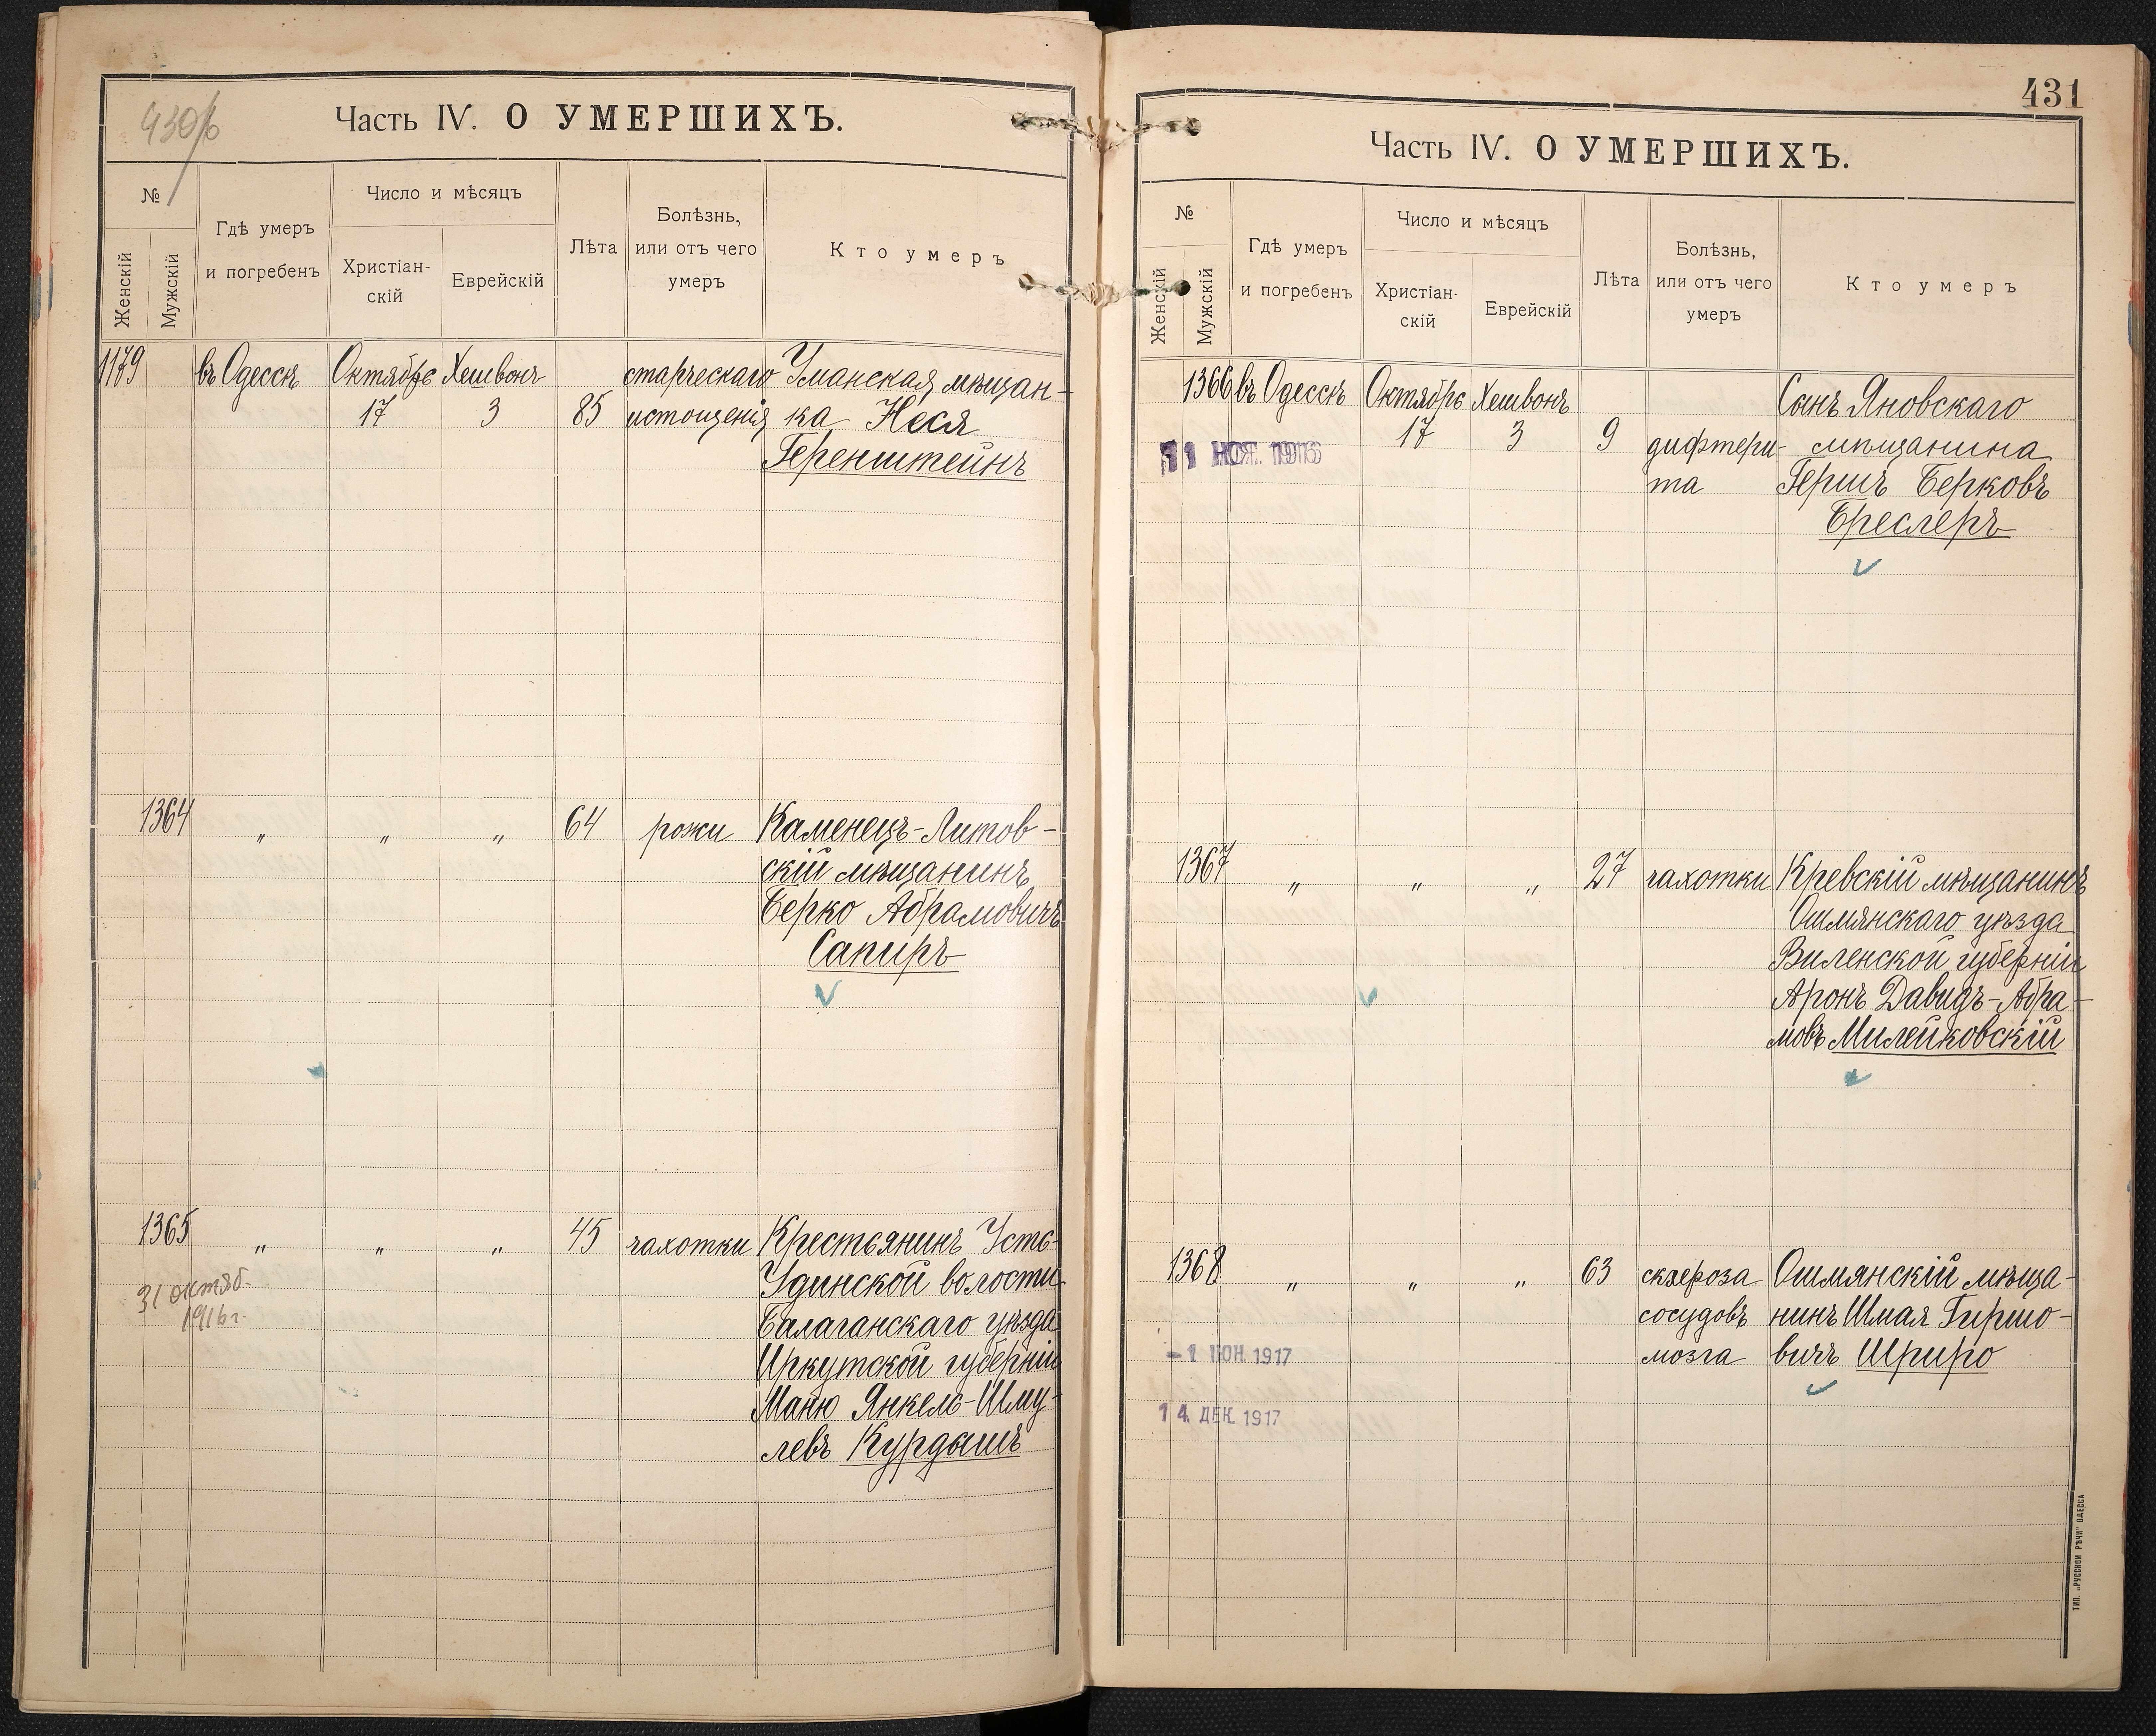 430/б
Часть IV. О УМЕРШИХЪ.
№
Женскій
Мужскій
Гдѣ умеръ
и погребенъ
Число и мѣсяцъ
Христіан-
скій
Еврейскій
Лѣта
Болѣзнь,
или отъ чего
умеръ
Кто умеръ
1179 въ Одессѣ Октябрь Хешвонъ старческаго Уманская мѣщан-
17 3 85 истощенія ка Неся
Геренштейнъ
1364 " " " 64 рожи Каменецъ-Литов-
скій мѣщанинъ
Берко Абрамовичъ
Сапиръ
1365 " " " 45 чахотки Крестьянинъ Усть-
Удинской волости
31 октяб.
1916 г.
Балаганскаго уѣзда
Иркутской губерніи
Маню Янкель-Шму-
левъ Курдышъ
431
Часть IV. О УМЕРШИХЪ.
№
Женскій
Мужскій
Гдѣ умеръ
и погребенъ
Число и мѣсяцъ
Христіан-
скій
Еврейскій
Лѣта
Болѣзнь,
или отъ чего
умеръ
Кто умеръ
1366 въ Одессѣ Октябрь Хешвонъ Сынъ Яновскаго
17 3 9 дифтери- мѣщанина
11 НОЯ. 1916
та Гершъ Берковъ
Бреслеръ
1367 " " " 27 чахотки Кревскій мѣщанинъ
Ошмянскаго уѣзда
Виленской губерніи
Аронъ Давидъ-Абра-
мовъ Милейковскій
1368 " " " 63 склероза Ошмянскій мѣща-
сосудовъ нинъ Шмая Гиршо-
мозга вичъ Шриро
-1 ІЮН. 1917
14 ДЕК. 1917
ТИП. „РУССКОЙ РѢЧИ" ОДЕССА